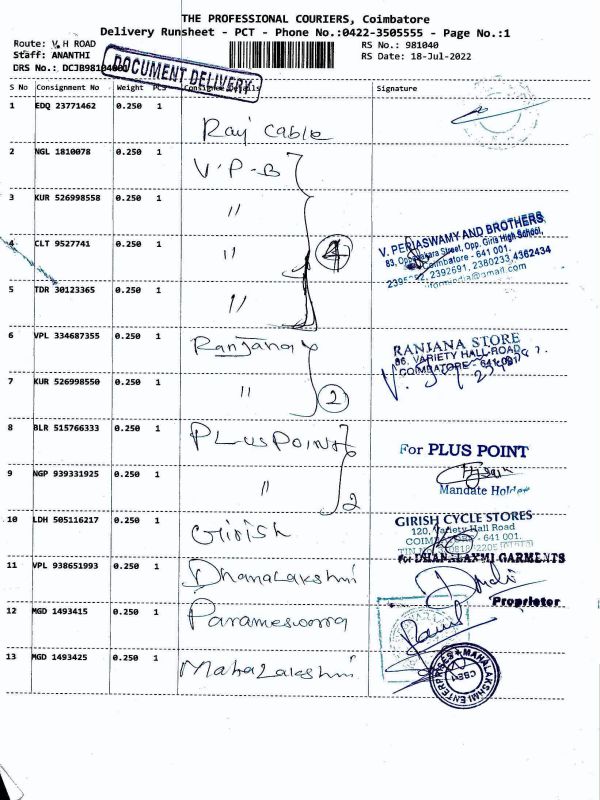 THE PROFESSIONAL COURIERS, Coimbatore
Delivery Runsheet - PCT - Phone No.:0422-3505555 - Page No.:1
Route: V H ROAD
RS No.: 981040
Staff: ANANTHI
RS Date: 18-Jul-2022
DRS No.: DCJB981040
DOCUMENT DELIVERY
S No Consignment No Weight PCS Consignee Details Signature
1 EDQ 23771462 0.250 1 Raj Cable
2 NGL 1810078 0.250 1 V.P.B
3 KUR 526998558 0.250 1 "
4 CLT 9527741 0.250 1 " 4
V. PERIASWAMY AND BROTHERS
Street, Opp. Girls High School,
Coimbatore - 641 001.
2392691, 2380233, 4362434
@gmail.com
5 TDR 30123365 0.250 1 "
6 VPL 334687355 0.250 1 Ranjana
RANJANA STORE
86, VARIETY HALL ROAD
COIMBATORE - 641 001
7 KUR 526998550 0.250 1 " 2
8 BLR 515766333 0.250 1 PLUS POINT
For PLUS POINT
9 NGP 939331925 0.250 1 " 2
Mandate Holder
10 LDH 505116217 0.250 1 Girish
GIRISH CYCLE STORES
120, Variety Hall Road
COIMBATORE - 641 001.
11 VPL 938651993 0.250 1 Dhanalakshmi
For DHANALAXMI GARMENTS
Proprietor
12 MGD 1493415 0.250 1 Parameswara
13 MGD 1493425 0.250 1 Mahalakshmi
MAHALAKSHMI ENTERPRISES
CBE-1